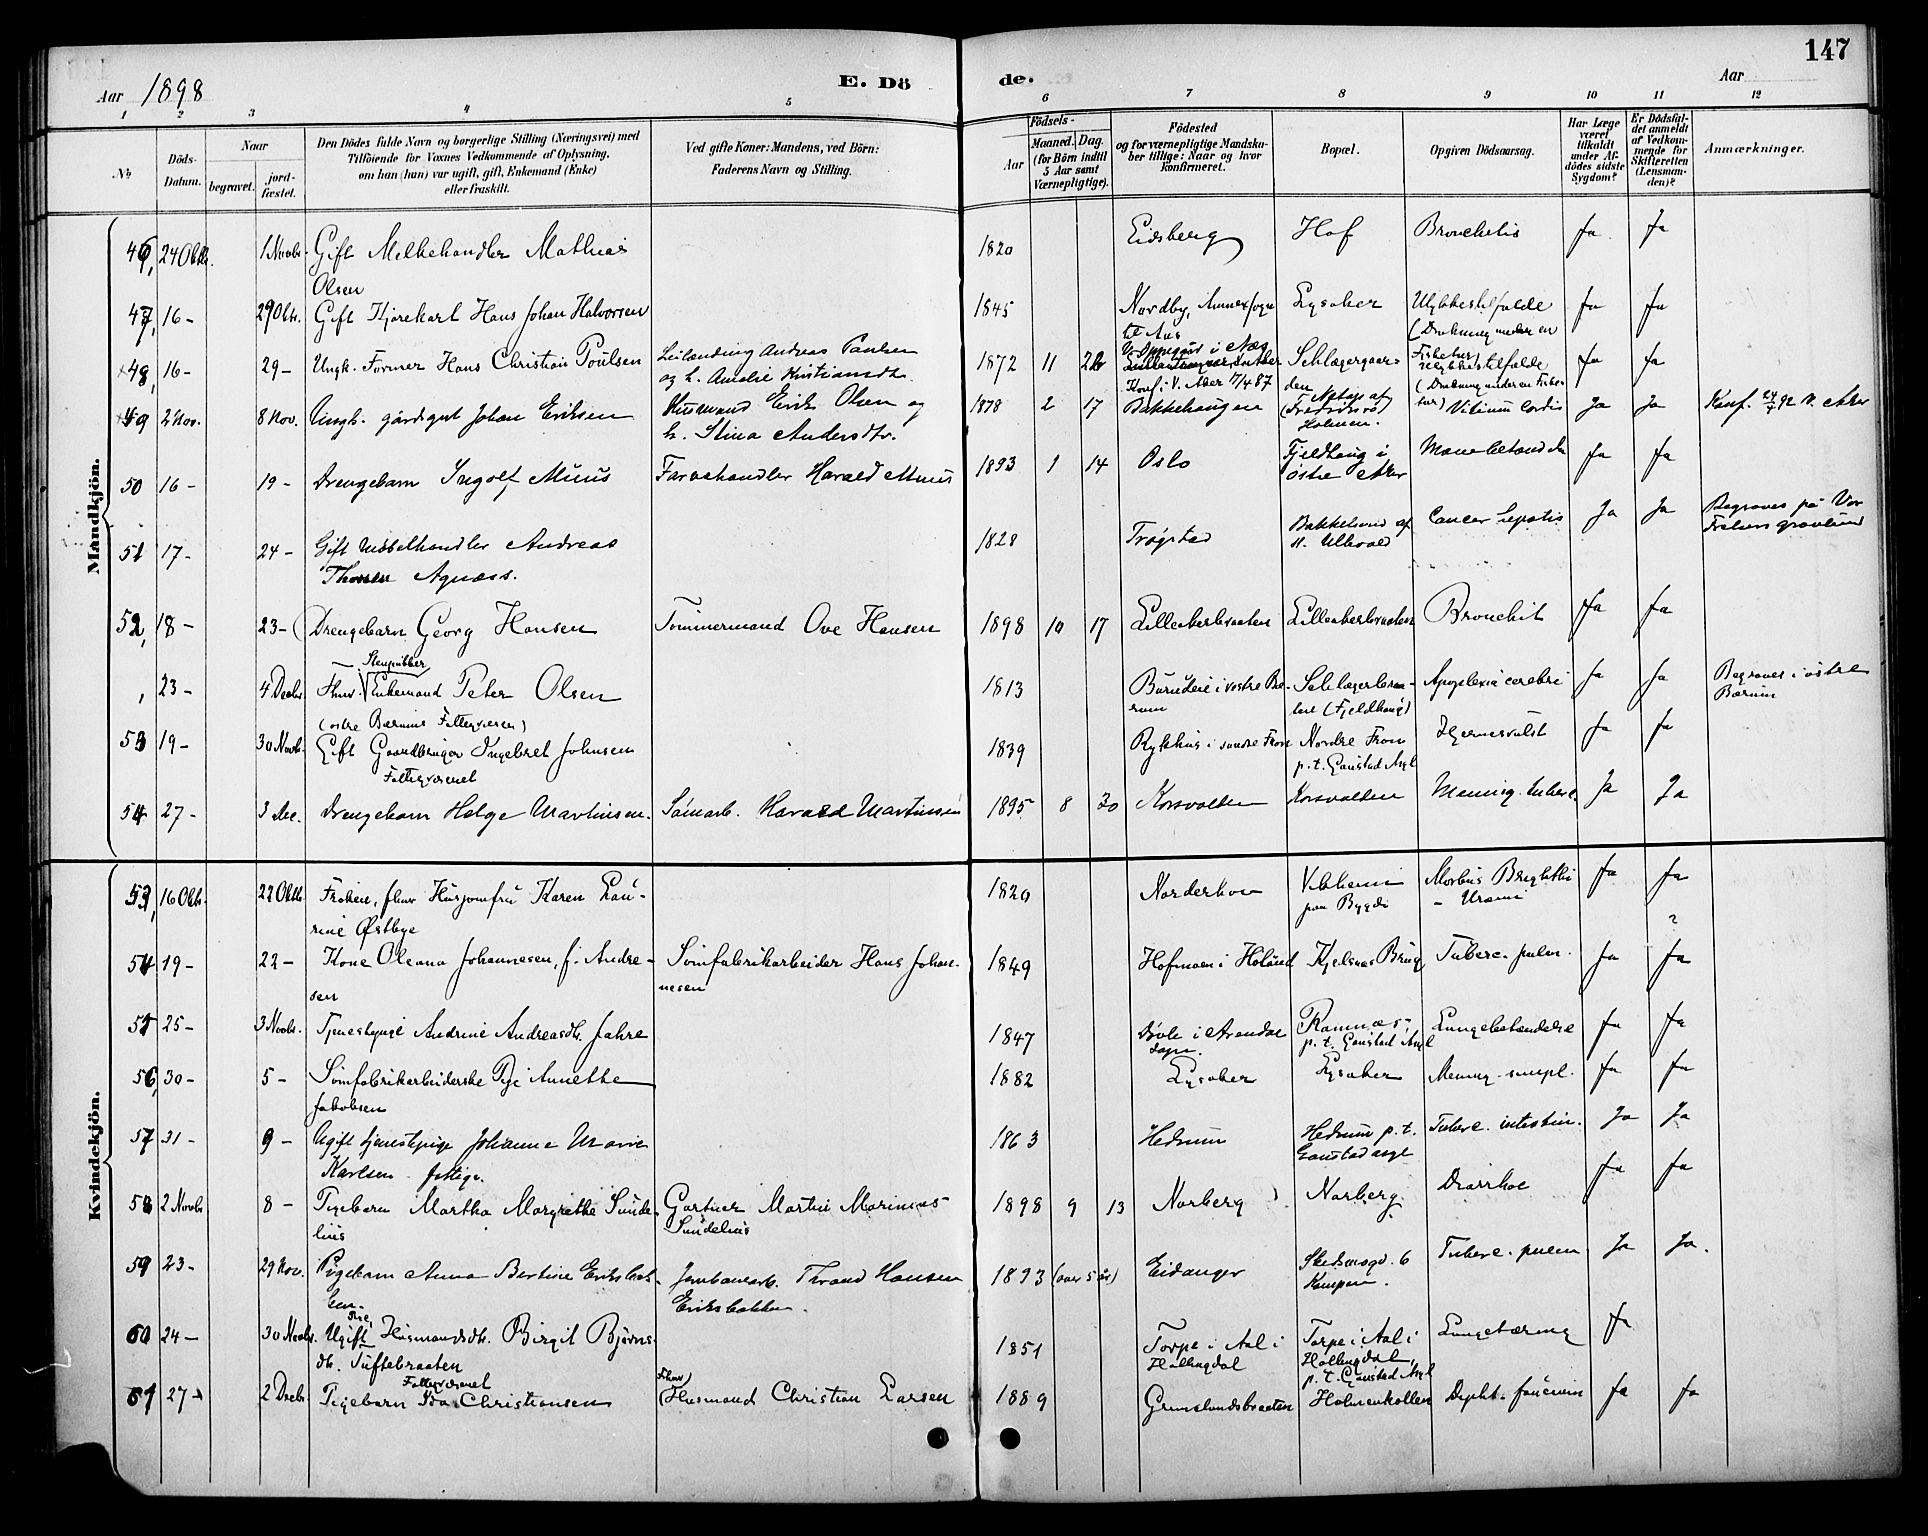 147
Aar 1898
E. Dö
de.
Aar
1 2 3 4 5 6 7 8 9 10 11 12
No
Döds-Datum.
Naar
begravet.
jordfæstet.
Den Dödes fulde Navn og borgerlige Stilling (Næringsvei) med
Tilföiende for Voxnes Vedkommende af Oplysning,
om han (hun) var ugift, gift, Enkemand (Enke)
eller fraskilt.
Ved gifte Koner: Mandens, ved Börn:
Faderens Navn og Stilling.
Födsels-
Aar
Maaned. Dag.
(for Börn indtil
5 Aar samt
Værnepligtige).
Födested
og for værnepligtige Mandska-
ber tillige: Naar og hvor
konfirmeret.
Bopæl.
Opgiven Dödsaarsag.
Har Læge
været
tilkaldt
under Af-
dödes sidste
Sygdom?
Er Dödsfal-
det anmeldt
af Vedkom-
mende for
Skifteretten
(Lensman-
den)?
Anmærkninger.
Mandkjön.
46, 24 Oktb. 1 Novb. Gift Melkehandler Mathias 1820 Eidsberg Hof Bronchitis Ja Ja
Olsen
47, 16 - 29 Oktb. Gift Kjørekarl Hans Johan Halvorsen 1845 Nordby, Annexsogn Lysaker Ulykkestilfælde Ja Ja
til Aas (Drukning under en
48, 16 - 29 - Ungk. Former Hans Christian Poulsen Leilænding Andreas Paulsen 1872 11 22 Schlægergaar- Ulykkestilfælde Ja Ja
og h. Amalie Kristiansdtr. Konf. i V. Aker 17/4 87 den (Drukning under en Fiske-
49 2 Nov. 8 Nov. Ungk. gårdsgut Johan Eriksen Husmand Erik Olsen og 1878 2 17 Bakkehaugen tur) Vitium Cordis Ja Ja Konf. 24/4 92 V. Aker
h. Stina Andersdtr. Holmen.
50 16 - 19 - Drengebarn Ingolf Muus Farvehandler Harald Muus 1893 1 14 Oslo Fjeldhaug i Ja Ja
østre Aker
51 17 - 24 - Gift Møbelhandler Andreas 1828 Trøgstad Cancer hepatis Ja Ja Begraves på Vor
Agnæss. Frelsers gravlund
52, 18 - 23 - Drengebarn Georg Hansen Tømmermand Ove Hansen 1898 10 17 Lilleakerbraaten Lilleakerbraaten Bronchit Ja Ja
23 - 4 Decb. Fhnv. Enkemand Peter Olsen 1813 Apoplexia cerebri Ja Ja Begraves i østre
(østre Bærums Fattigvæsen) rum (Fjeldhaug) Bærum
53 19 - 30 Novb. Gift Gaardbruger Ingebret Johnsen 1839 i søndre Fron Nordre Fron Hjernesvulst Ja Ja
Fattigvæsenet p.t. Gaustad Asyl
54 27 - 3 Dec. Drengebarn Helge Martinsen. Sømarb. Harald Martinsen 1895 8 30 Korsvolden Korsvolden Mening. tuberc. Ja Ja
Kvindekjön.
53, 16 Oktb. 22 Oktb. Frøken, fhnv. Husjomfru Karen Lau- 1820 Norderhov Morbus Brightii Ja Ja
rine Østbye paa Bygdø - Uræmi ?
54 19 - 22 - Kone Oleana Johannesen, f. Andre- Sømfabrikarbeider Hans Johan- 1849 Hofmoen i Høland Kjelsaas Brug Tuberc. pulm. Ja Ja
sen nesen
55 25 - 3 Novb. Tjenestepige Andrine Andreasdtr. Jahre 1847 Ramnæs Lungebetændelse Ja Ja
p.t. Gaustad Asyl
56, 30 - 5 - Sømfabrikarbeiderske Pige Annette 1882 Lysaker Lysaker Mening. simpl. Ja Ja
Jakobsen
57 31 - 9 - Ugift tjenestepige Johanne Marie 1863 Hedrum Hedrum p.t. Tuberc. intestin. Ja Ja
Karlsen. fattig. Gaustad asyl
58 2 Novb. 8 - Pigebarn Martha Margrethe Sunde- Gartner Martin Marinius 1898 9 13 Norberg Norberg Diarrhoe Ja Ja
lius Sundelius
59 23 - 29 Nov. Pigebarn Anna Bertine Eriksbak- Jernbanearb. Thrond Hansen 1893 (over 5 år) Eidanger Skedsmogd. 6 Tuberc. pulm Ja Ja.
ken. Eriksbakken. Kampen.
60 24 - 30 Novb. Ugift Pige, Husmandsdtr. Birgit Bjørns- 1851 Torpe i Aal i Torpe i Aal i Lungetæring Ja
dtr. Tuftebraaten Hallingdal Hallingdal,
Fattigvæsenet p.t. Gaustad Asyl
61 27 - 2 Decb. Pigebarn Ida Christiansen Fhnv. Husmand Christian Larsen 1889 Grimelundsbraaten Holmenkollen Dipht. faucium Ja Ja